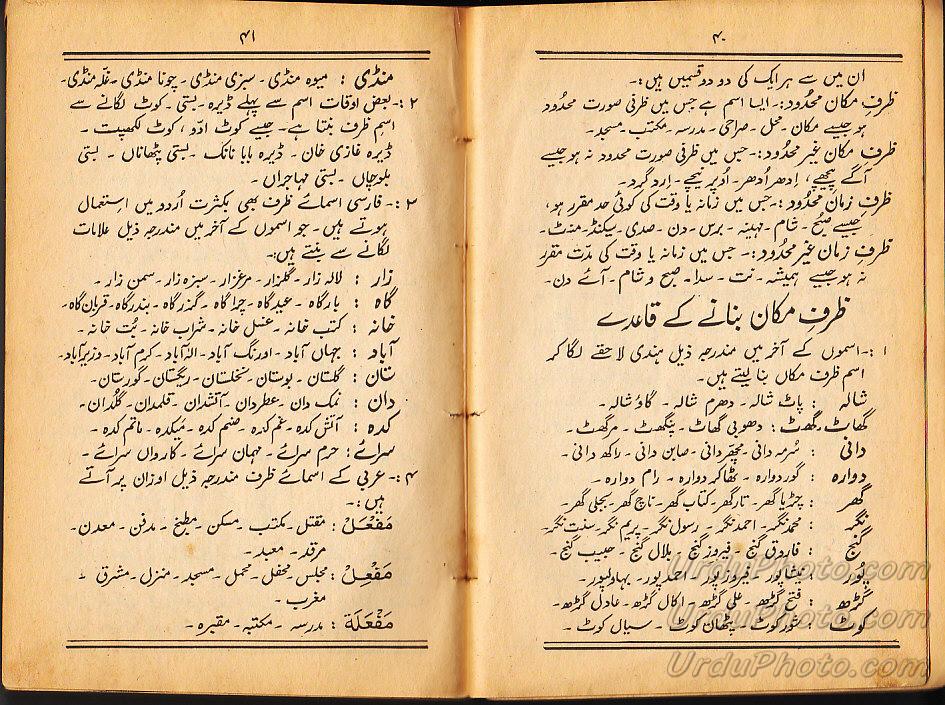 ۴۰
ان میں سے ہر ایک کی دو دو قسمیں ہیں :۔
ظرفِ مکان محدُود :۔ ایسا اسم ہے جس میں ظرفی صورت محدُود
ہو جیسے مکان ۔ محل ۔ صراحی ۔ مدرسہ ۔ مکتب ۔ مسجد ۔
ظرفِ مکان غیر محدُود :۔ جس میں ظرفی صورت محدود نہ ہو جیسے
آگے پیچھے ، اِدھر اُدھر ۔ اُوپر نیچے ۔ اِرد گرد ۔
ظرفِ زمان محدُود :۔ جس میں زمانہ یا وقت کی کوئی حد مقرر ہو ،
جیسے صبح ۔ شام ۔ مہینہ ۔ برس ۔ دن ۔ صدی ۔ سیکنڈ ۔ منٹ ۔
ظرفِ زمان غیر محدُود :۔ جس میں زمانہ یا وقت کی مدّت مقرر
نہ ہو جیسے ہمیشہ ۔ نت ۔ سدا ۔ صبح و شام ۔ آئے دن ۔
ظرف مکان بنانے کے قاعدے
۱ :۔ اسموں کے آخر میں مندرجہ ذیل ہندی لاحقے لگا کر
اسم ظرف مکاں بنا لیتے ہیں ۔
شالہ : پاٹ شالہ ۔ دھرم شالہ ۔ گاؤ شالہ ۔
گھاٹ ۔ گھٹ : دھوبی گھاٹ ۔ پنگھٹ ۔ مرگھٹ ۔
دانی : سُرمہ دانی ۔ مچھر دانی ۔ صابن دانی ۔ راکھ دانی ۔
دوارہ : گوردوارہ ۔ ٹھاکر دوارہ ۔ رام دوارہ ۔
گھر : چڑیا گھر ۔ تار گھر ۔ کتاب گھر ۔ ناچ گھر ۔ بجلی گھر ۔
نگر : محمد نگر ۔ احمد نگر ۔ رسول نگر ۔ پریم نگر ۔ سنت نگر ۔
گنج : فاروق گنج ۔ فیروز گنج ۔ بلال گنج ۔ حبیب گنج ۔
پُور : نیشاپور ۔ فیروز پور ۔ احمد پور ۔ بہاولپور ۔
گڑھ : فتح گڑھ ۔ علی گڑھ ۔ اکال گڑھ ۔ عادل گڑھ ۔
کوٹ : شور کوٹ ۔ پٹھان کوٹ ۔ سیال کوٹ ۔
UrduPhoto.com
UrduPhoto.com
UrduPhoto.com
۴۱
منڈی : میوہ منڈی ۔ سبزی منڈی ۔ چونا منڈی ۔ غلّہ منڈی ۔
۲ :۔ بعض اوقات اسم سے پہلے ڈیرہ ۔ بستی ۔ کوٹ لگانے سے
اسمِ ظرف بنتا ہے ۔ جیسے کوٹ ادّو ، کوٹ لکھپت ۔
ڈیرہ غازی خان ۔ ڈیرہ بابا نانک ۔ بستی پٹھاناں ۔ بستی
بلوچاں ۔ بستی مہاجراں ۔
۳ :۔ فارسی اسمائے ظرف بھی بکثرت اُردو میں اِستعمال
ہوتے ہیں ۔ جو اسموں کے آخر میں مندرجہ ذیل علامات
لگانے سے بنتے ہیں :۔
زار : لالہ زار ۔ گلزار ۔ مرغزار ۔ سبزہ زار ۔ سمن زار ۔
گاہ : بارگاہ ۔ عیدگاہ ۔ چراگاہ ۔ گذرگاہ ۔ بندرگاہ ۔ قربان گاہ ۔
خانہ : کتب خانہ ۔ غسل خانہ ۔ شراب خانہ ۔ بُت خانہ ۔
آباد : جہاں آباد ۔ اورنگ آباد ۔ الہٰ آباد ۔ کرم آباد ۔ وزیر آباد ۔
تان : گلستان ۔ بوستان ۔ نخلستان ۔ ریگستان ۔ گورستان ۔
دان : نمک دان ۔ عطر دان ۔ آتشدان ۔ قلمدان ۔ گلدان ۔
کدہ : آتش کدہ ۔ غم کدہ ۔ صنم کدہ ۔ میکدہ ۔ ماتم کدہ ۔
سرائے : حرم سرائے ۔ مہمان سرائے ۔ کارواں سرائے ۔
۴ :۔ عربی کے اسمائے ظرف مندرجہ ذیل اوزان پر آتے
ہیں :۔
مَفْعَلْ : مقتل ۔ مکتب ۔ مسکن ۔ مطبخ ۔ مدفن ۔ معدن ۔
مرقد ۔ معبد ۔
مَفْعِلْ : مجلس ۔ محفل ۔ محمل ۔ مسجد ۔ منزل ۔ مشرق ۔
مغرب ۔
مَفْعَلَة : مدرسہ ۔ مکتبہ ۔ مقبرہ ۔